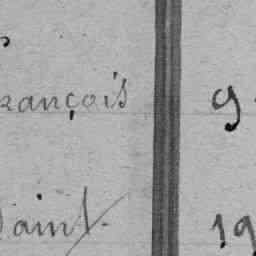 rançois 9
aint. 19